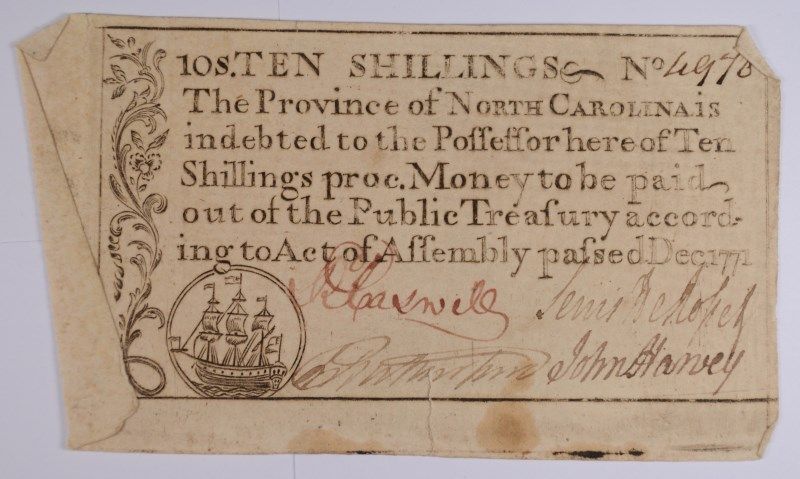 10S. TEN SHILLINGS No 4970
The Province of NORTH CAROLINA is
indebted to the Poſſeſſor hereof Ten
Shillings proc. Money to be paid
out of the Public Treaſury accord-
ing to Act of Aſſembly paſsed Dec. 1771
Rd Caswell Lewis De Rosset
John Harvey